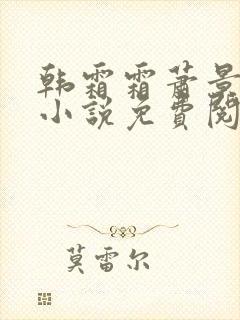 韩霜霜萧景
小说免费阅
莫雷尔